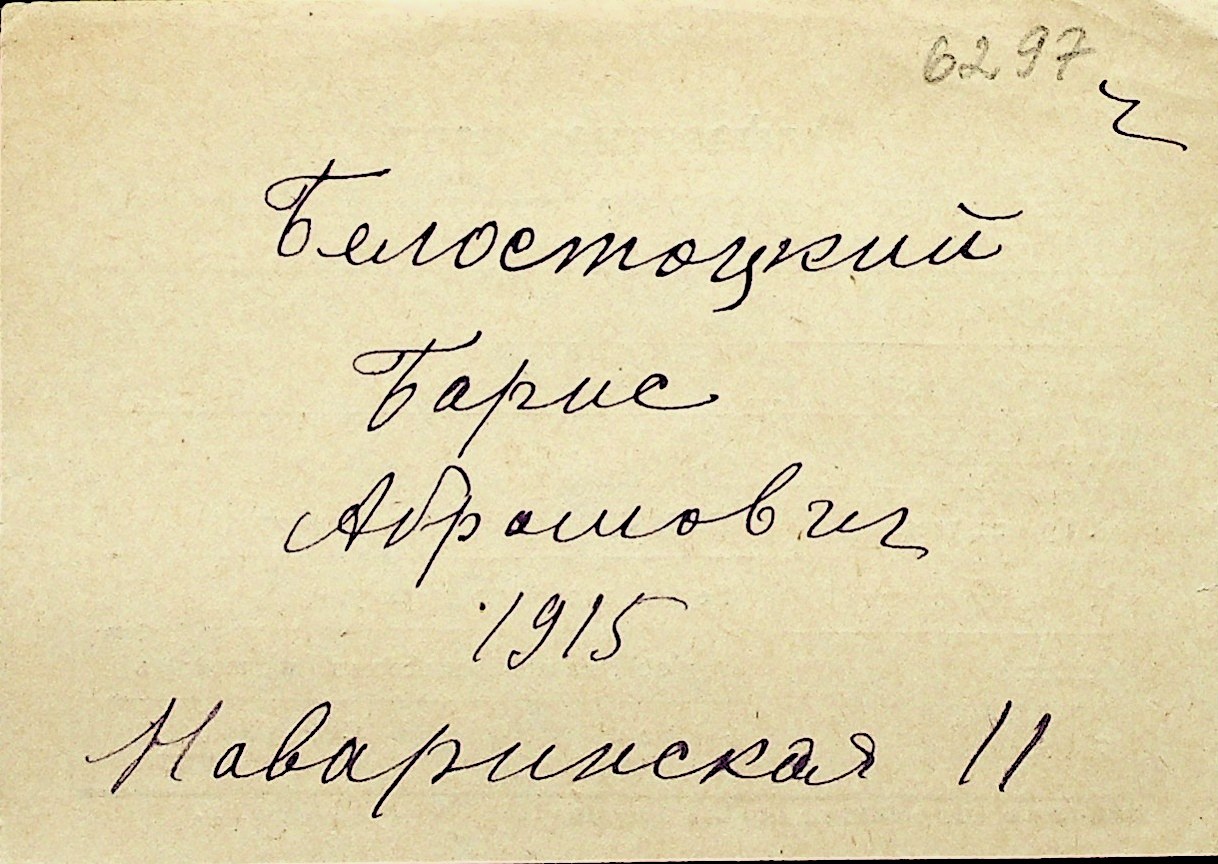 6297
Белостоцкий
Борис
Абрамович
1915
Наваринская 11